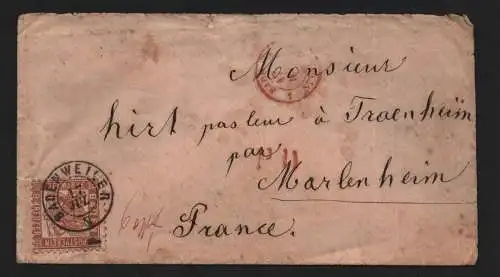 Monsieur
hirt pasteur à Traenheim
par
Marlenheim
France.
BADENWEILER